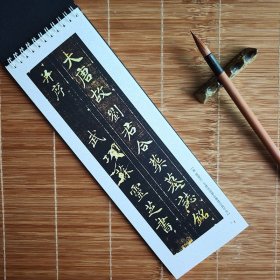 大唐故劉君合英墓誌銘
并序
武功蘇靈芝書